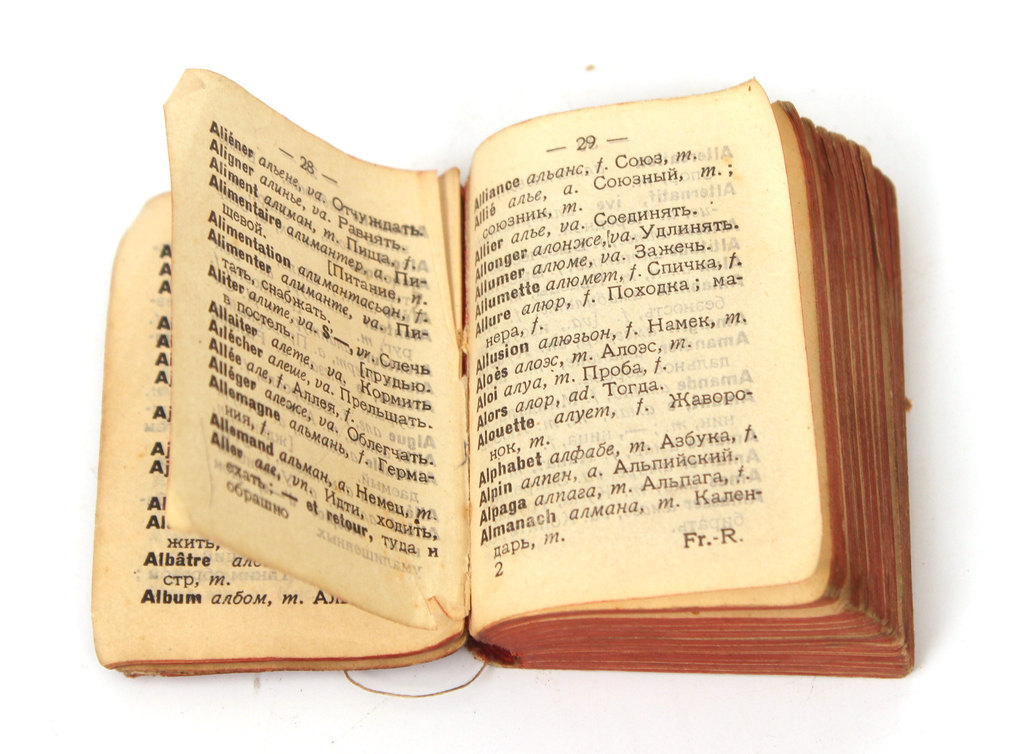 — 28 —
Aliéner альене, va. Отчуждать.
Aligner алинье, va. Равнять.
Aliment алиман, m. Пища, f.
Alimentaire алимантер, a. Пи-
щевой.
[Питание, n.
Alimentation алимантасьон, f.
Alimenter алиманте, va. Пи-
тать, снабжать.
Aliter алите, va. S'—, vr. Слечь
в постель.
[грудью.
Allaiter алете, va. Кормить
Allécher алеше, va. Прельщать.
Allée але, f. Аллея, f.
Alléger алеже, va. Облегчать.
Allemagne альмань, f. Герма-
ния, f.
Allemand альман, a. Немец, m.
Aller але, vn. Идти, ходить,
ехать; — et retour, туда и
обрашно
жить,
Albâtre
стр, m.
Album албом, m.
— 29 —
Alliance альанс, f. Союз, m.
Allié алье, a. Союзный, m. ;
союзник, m.
Allier алье, va. Соединять.
Allonger алонже, va. Удлинять.
Allumer алюме, va. Зажечь.
Allumette алюмет, f. Спичка, f.
Allure алюр, f. Походка ; ма-
нера, f.
Allusion алюзьон, f. Намек, m.
Aloès алоэс, m. Алоэс, m.
Aloi алуа, m. Проба, f.
Alors алор, ad. Тогда.
Alouette алует, f. Жаворо-
нок, m.
Alphabet алфабе, m. Азбука, f.
Alpin алпен, a. Альпийский.
Alpaga алпага, m. Альпага, f.
Almanach алмана, m. Кален-
дарь, m.
Fr.-R.
2